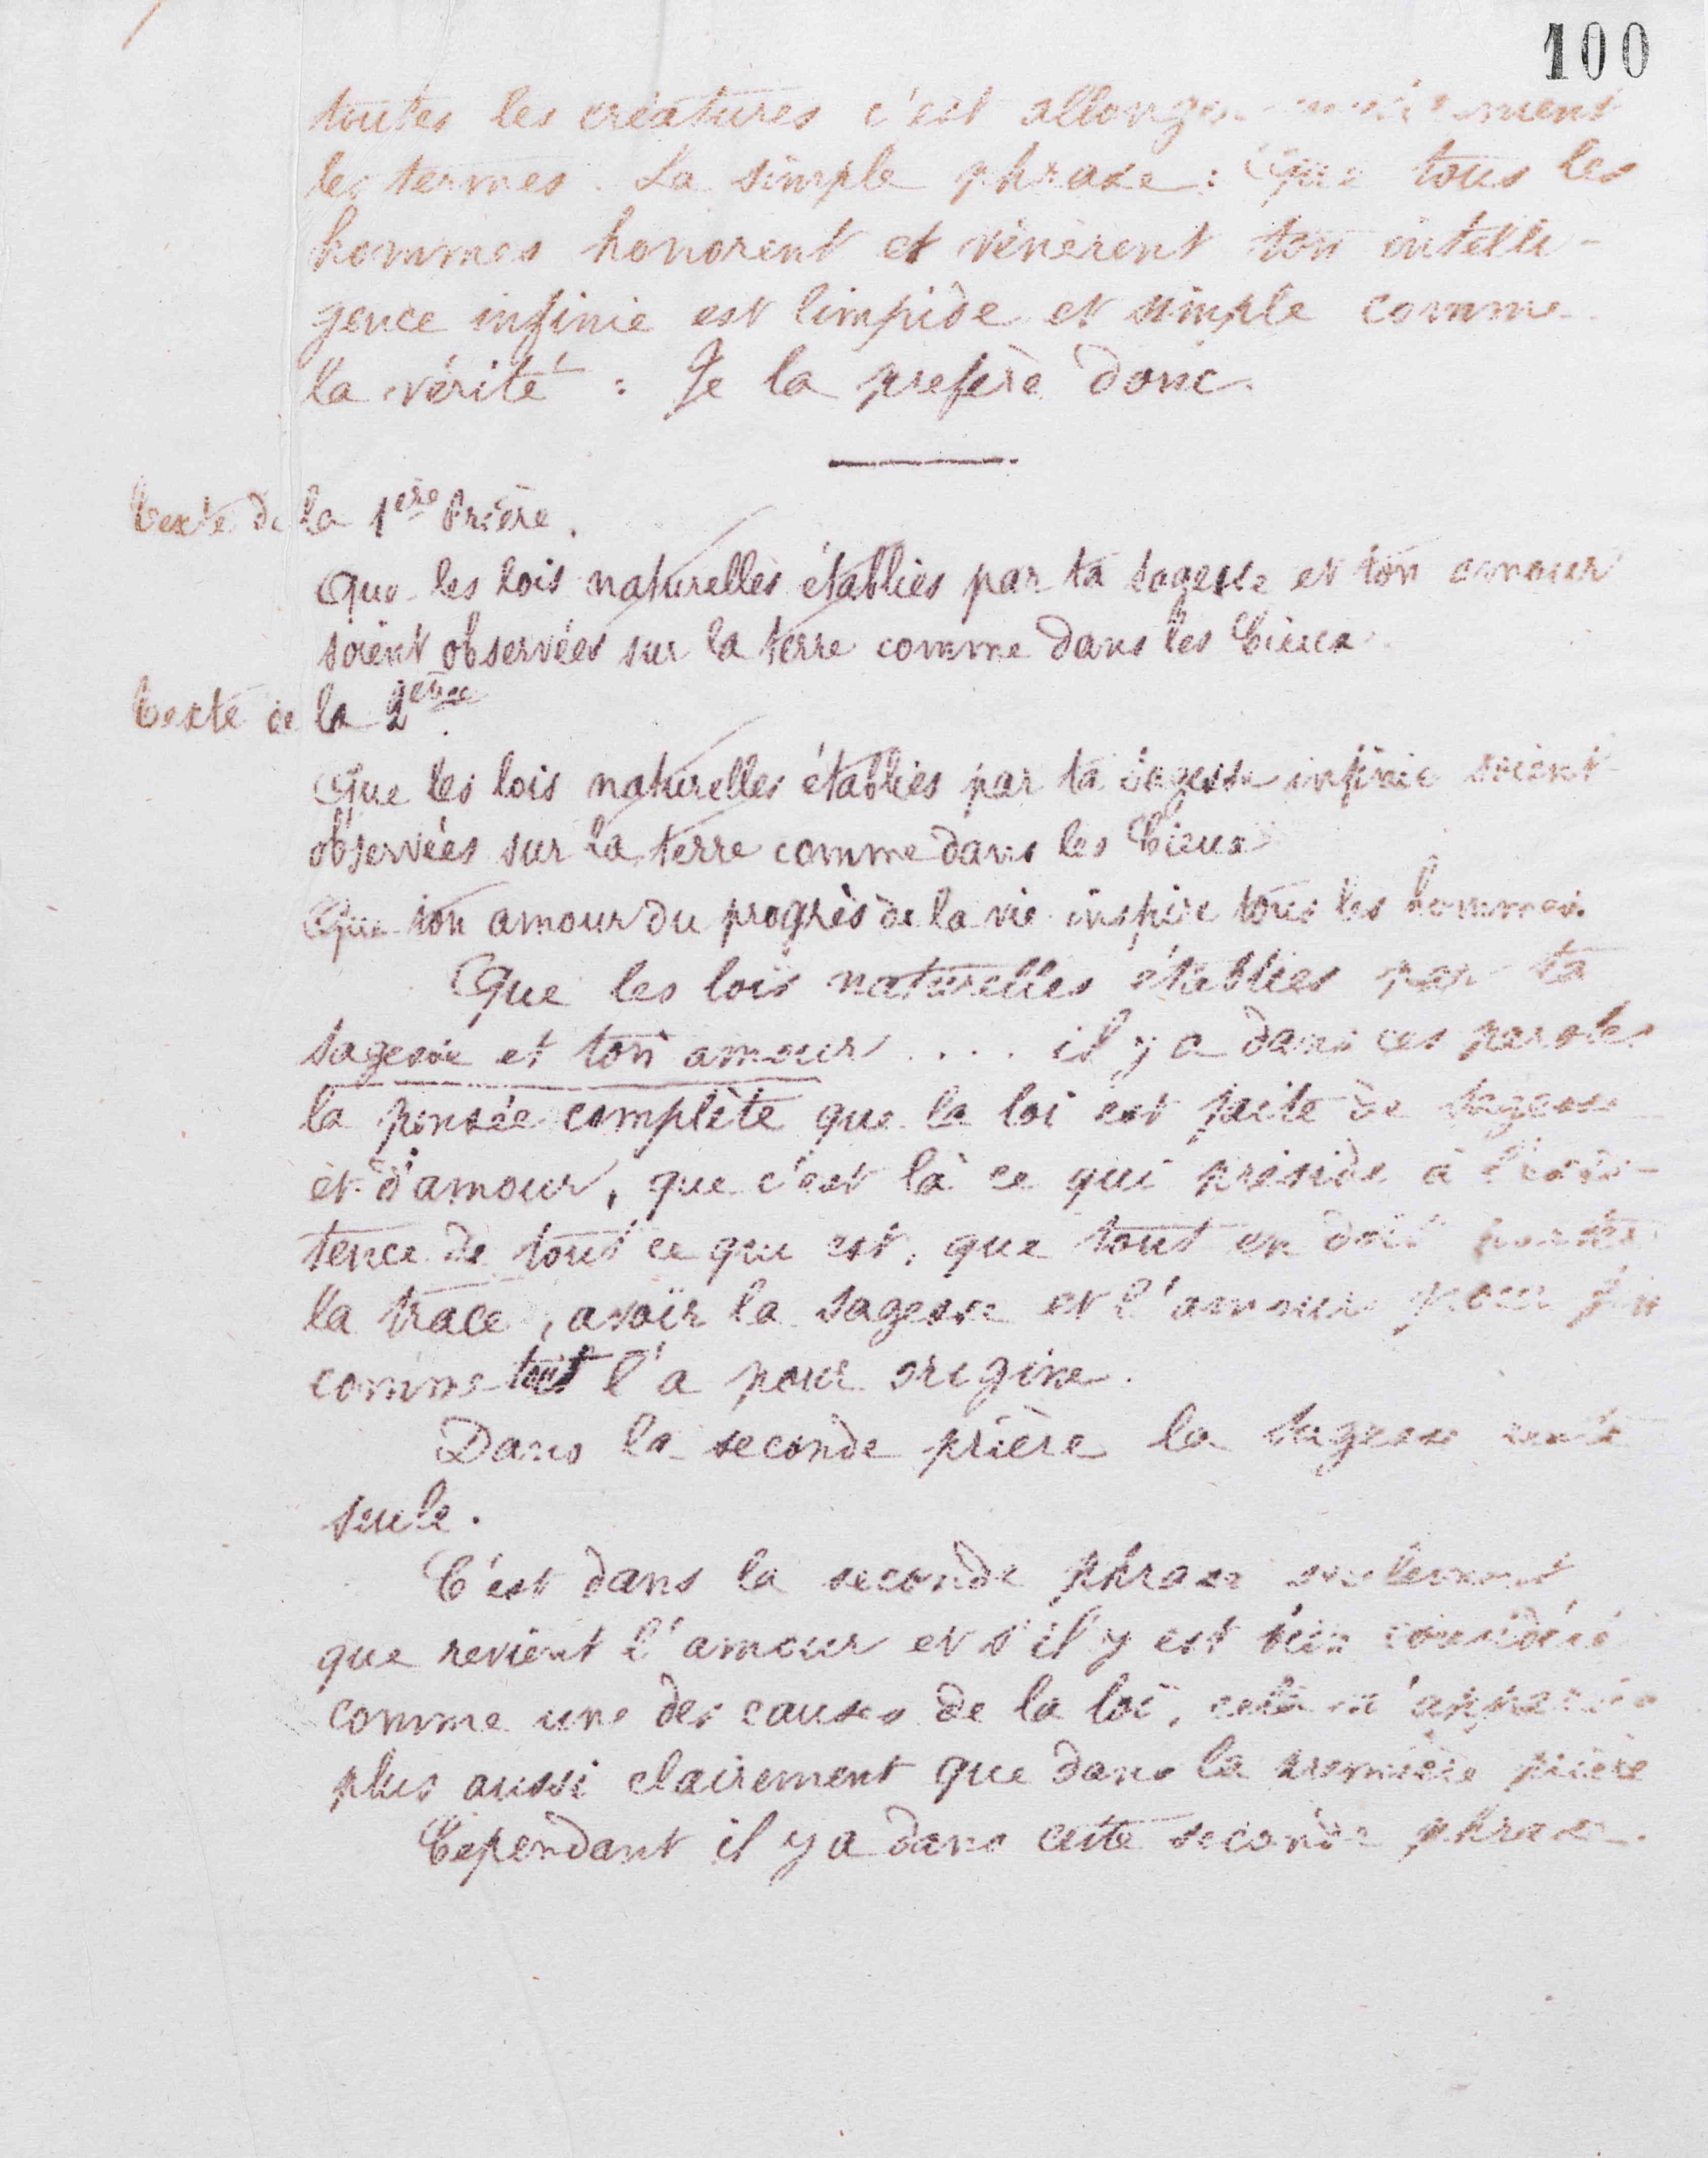 100
toutes les créatures c'est allonger
les termes. La simple phrase : Que tous les
hommes honorent et vénèrent ton intelli-
gence infinie est limpide et simple comme
la vérité : Je la préfère donc.
Texte de la 1ère Prière.
Que les lois naturelles établies par ta sagesse et ton amour
soient observées sur la terre comme dans les Cieux.
Texte de la 2ème.
Que les lois naturelles établies par ta sagesse infinie soient
observées sur la terre comme dans les Cieux
Que ton amour du progrès de la vie inspire tous les hommes.
Que les lois naturelles établies par ta
sagesse et ton amour .... il y a dans ces paroles
la pensée complète que la loi est faite de sagesse
et d'amour, que c'est là ce qui préside à l'exis-
tence de tout ce qui est, que tout en doit porter
la trace, avoir la sagesse et l'amour pour fin
comme tout l'a pour origine.
Dans la seconde prière la sagesse reste
seule.
C'est dans la seconde phrase seulement
que revient l'amour et s'il y est bien considéré
comme une des causes de la loi, cela n'apparaît
plus aussi clairement que dans la première prière
Cependant il y a dans cette seconde phrase